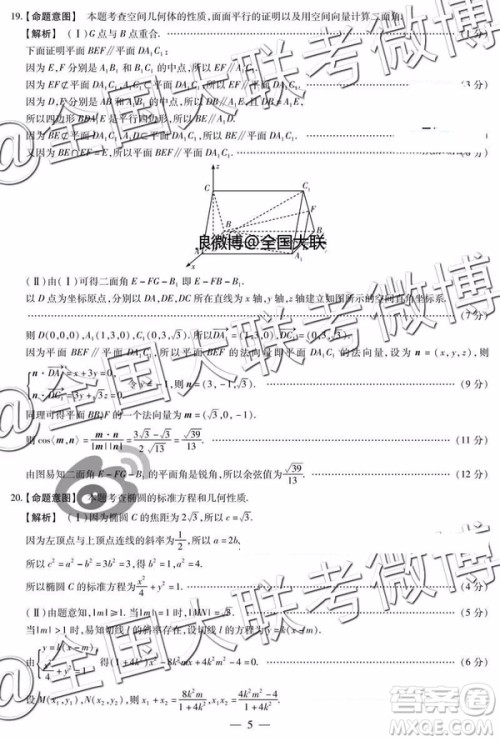 19.【命题意图】 本题考查空间几何体的性质,面面平行的证明以及用空间向量计算二面角.
【解析】 (Ⅰ)G点与B点重合.
下面证明平面BEF∥平面DA₁C₁.
因为E,F分别是A₁B₁和A₁C的中点,所以EF∥
因为EF⊄平面DA₁C₁,A₁C₁ 平面DA₁C₁, (3分)
因为D,E分别是AB和A₁B₁的中点,所以DB∥A₁E,且DB=A₁E,
所以四边形 是平行四边形,所以BE∥DA₁.
又因为BE∩EF=E,所以平面BEF∥平面DA₁C₁.
z
C
C₁
B
A₁
x
良微博@全国大联
(Ⅱ)由(Ⅰ)可得二面角E-FG-B₁即E-FB-B₁.
以D点为坐标原点,分别以DA,DE,DC所在直线为x轴,y轴,z轴建立如图所示的空间直角坐标系.
(7分)
则D(0,0,0),A₁(1,3,0),C₁(0,3,√3).所以
因为平面BEF∥平面DA₁C₁,所以平面BEF的法向量即平面DA₁C₁的法向量,设为n=(x,y,z),则
x+3y=0, 3y+√3z=0. 令 则n=(3,-1,√3). (9分)
同理可得平面BB₁F的一个法向量为m=(√3,0,-1).
则cos⟨m,n⟩=|m·n|/|m||n|=3√3-√3/2√13=√39/13. (11分)
由图易知二面角E-FG-B₁的平面角是锐角,所以余弦值为√39/13. (12分)
20.【命题意图】 本题考查椭圆的标准方程和几何性质.
【解析】 (Ⅰ)因为椭圆C的焦距为2√3,所以c=√3.
因为左顶点与上顶点连线的斜率为1/2,所以a=2b,
所以c²=a²-b²=3b²=3,得b²=1,a²=4.
所以椭圆C的标准方程为x²/4+y²=1. (4分)
(Ⅱ)由题意知,|m|≥1.当|m|=1时,|MN|=√3. (5分)
当|m|>1时,易知切线l的斜率存在,设切线l的方程为y=k(x-m).
由 y=k(x-m), 得(1+4k²)x²-8k²mx+4k²m²-4=0. (6分)
设M(x₁,y₁),N(x₂,y₂),则x₁+x₂=8k²m/1+4k²,x₁x₂=4k²m²-4/1+4k².
— 5 —
@全国大联考微博
@全国大联考微博